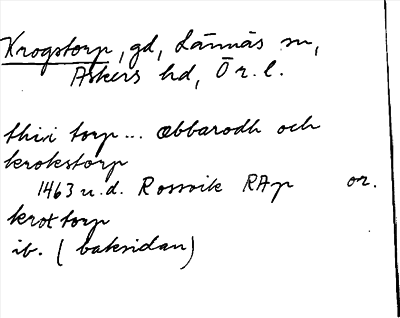 Krogstorp, gd, Lännäs sn,
Askers hd, Ör. l.
thiri torp... Abbarodh och
krokstorp
1463 u.d. Rossvik RAp or.
krottorp
ib. (baksidan)